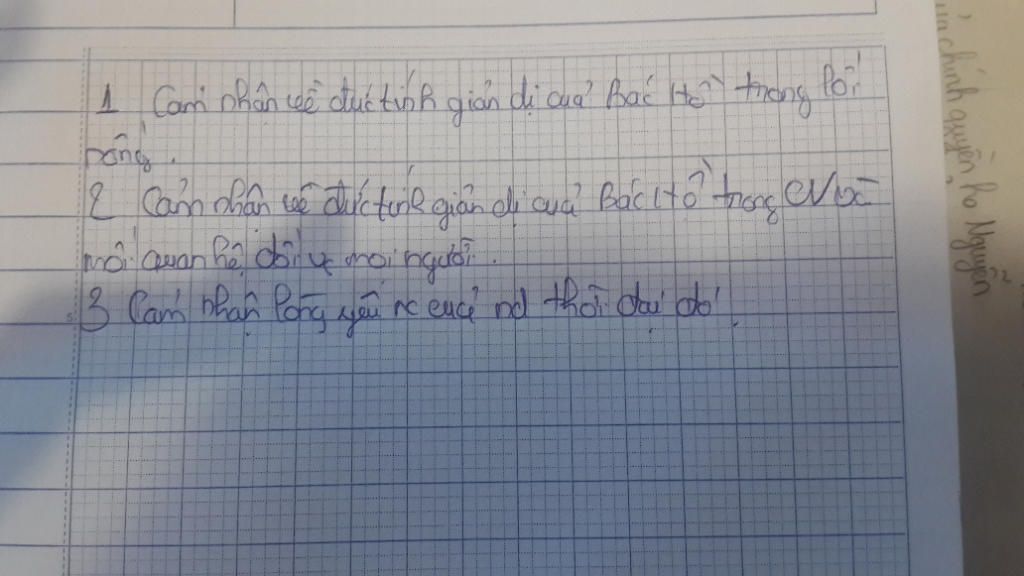 1 Cảm nhận về đức tính giản dị của Bác Hồ trong lối
sống.
2 Cảm nhận về đức tính giản dị của Bác Hồ trong
mối quan hệ đối vs mọi người.
3 Cảm nhận lòng yêu nc của nd thời đại đó
chính quyền họ Nguyễn